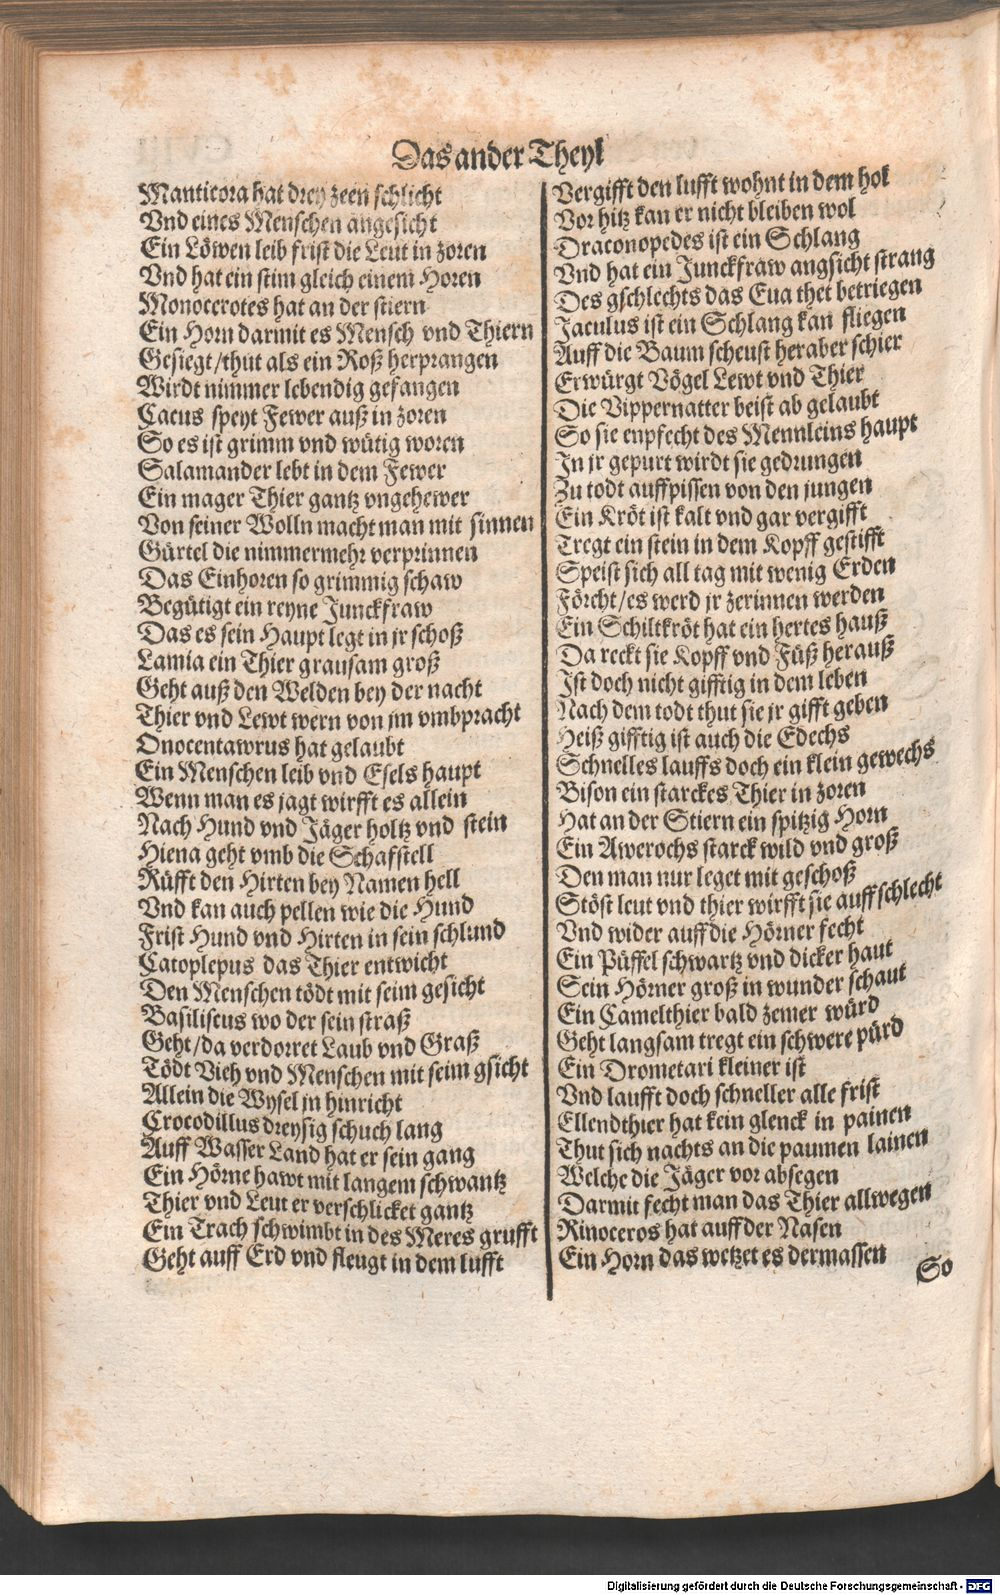 Das ander Theyl
Manticora hat drey zeen schlicht
Vnd eines Menschen angesicht
Ein Löwen leib frist die Leut in zoren
Vnd hat ein stim gleich einem Horen
Monocerotes hat an der stiern
Ein Horn darmit es Mensch vnd Thiern
Gesiegt/thut als ein Roß herprangen
Wirdt nimmer lebendig gefangen
Cacus speyt Fewer auß in zoren
So es ist grimm vnd wütig woren
Salamander lebt in dem Fewer
Ein mager Thier gantz vngehewer
Von seiner Wolln macht man mit sinnen
Gürtel die nimmermehr verprinnen
Das Einhoren so grimmig schaw
Begütigt ein reyne Junckfraw
Das es sein Haupt legt in jr schoß
Lamia ein Thier grausam groß
Geht auß den Welden bey der nacht
Thier vnd Lewt wern von jm vmbpracht
Onocentawrus hat gelaubt
Ein Menschen leib vnd Esels haupt
Wenn man es jagt wirfft es allein
Nach Hund vnd Jäger holtz vnd stein
Hiena geht vmb die Schafstell
Rüfft den Hirten bey Namen hell
Vnd kan auch pellen wie die Hund
Frist Hund vnd Hirten in sein schlund
Catoplepus das Thier entwicht
Den Menschen tödt mit seim gesicht
Basiliscus wo der sein straß
Geht/da verdorret Laub vnd Graß
Tödt Vieh vnd Menschen mit seim gsicht
Allein die Wysel jn hinricht
Crocodillus dreysig schuch lang
Auff Wasser Land hat er sein gang
Ein Hörne hawt mit langem schwantz
Thier vnd Leut er verschlicket gantz
Ein Trach schwimbt in des Meres grufft
Geht auff Erd vnd fleugt in dem lufft
Vergifft den lufft wohnt in dem hol
Vor hitz kan er nicht bleiben wol
Draconopedes ist ein Schlang
Vnd hat ein Junckfraw angsicht strang
Des gschlechts das Eua thet betriegen
Jaculus ist ein Schlang kan fliegen
Auff die Baum scheust heraber schier
Erwürgt Vögel Lewt vnd Thier
Die Vippernatter beist ab gelaubt
So sie enpfecht des Mennleins haupt
In jr gepurt wirdt sie gedrungen
Zu todt auffpissen von den jungen
Ein Kröt ist kalt vnd gar vergifft
Tregt ein stein in dem Kopff gestifft
Speist sich all tag mit wenig Erden
Förcht/es werd jr zerinnen werden
Ein Schiltkröt hat ein hertes hauß
Da reckt sie Kopff vnd Füß herauß
Ist doch nicht gifftig in dem leben
Nach dem todt thut sie jr gifft geben
Heiß gifftig ist auch die Edechs
Schnelles lauffs doch ein klein gewechs
Bison ein starckes Thier in zoren
Hat an der Stiern ein spitzig Horn
Ein Awerochs starck wild vnd groß
Den man nur leget mit geschoß
Stöst leut vnd thier wirfft sie auff schlecht
Vnd wider auff die Hörner fecht
Ein Püffel schwartz vnd dicker haut
Sein Hörner groß in wunder schaut
Ein Camelthier bald zemer würd
Geht langsam tregt ein schwere pürd
Ein Drometari kleiner ist
Vnd laufft doch schneller alle frist
Ellendthier hat kein glenck in painen
Thut sich nachts an die paumen lainen
Welche die Jäger vor absegen
Darmit fecht man das Thier allwegen
Rinoceros hat auff der Nasen
Ein Horn das wetzet es dermassen
So
Digitalisierung gefördert durch die Deutsche Forschungsgemeinschaft - DFG